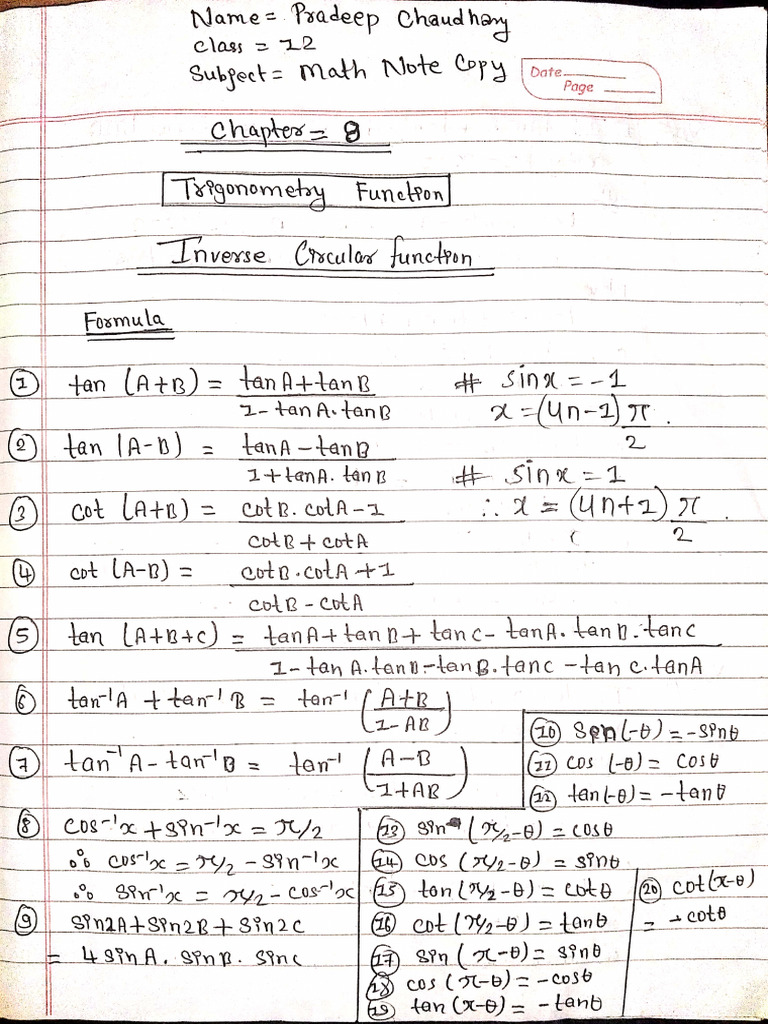 Name = Pradeep Chaudhary
Class = 12
Subject = Math Note Copy
Date
Page
Chapter = 8
Trigonometry Function
Inverse Circular function
Formula
① tan (A+B) = (tanA + tanB)/(1 - tanA.tanB)
# sinx = -1
x = (4n-1) π/2.
② tan (A-B) = (tanA - tanB)/(1 + tanA.tanB)
# sinx = 1
∴ x = (4n+1) π/2.
③ cot (A+B) = (cotB.cotA - 1)/(cotB + cotA)
④ cot (A-B) = (cotB.cotA + 1)/(cotB - cotA)
⑤ tan (A+B+C) = (tanA + tanB + tanC - tanA.tanB.tanC)/(1 - tanA.tanB - tanB.tanC - tanC.tanA)
⑥ tan⁻¹A + tan⁻¹B = tan⁻¹ ((A+B)/(1-AB))
⑦ tan⁻¹A - tan⁻¹B = tan⁻¹ ((A-B)/(1+AB))
⑧ cos⁻¹x + sin⁻¹x = π/2
∴ cos⁻¹x = π/2 - sin⁻¹x
∴ sin⁻¹x = π/2 - cos⁻¹x
⑨ sin2A + sin2B + sin2C
= 4 sinA. sinB. sinC
⑩ Sin(-θ) = -sinθ
⑪ cos (-θ) = cosθ
⑫ tan(-θ) = -tanθ
⑬ sin (π/2-θ) = cosθ
⑭ cos (π/2-θ) = sinθ
⑮ tan (π/2-θ) = cotθ
⑯ cot (π/2-θ) = tanθ
⑰ sin (π-θ) = sinθ
⑱ cos (π-θ) = -cosθ
⑲ tan (π-θ) = -tanθ
⑳ cot(π-θ)
= -cotθ